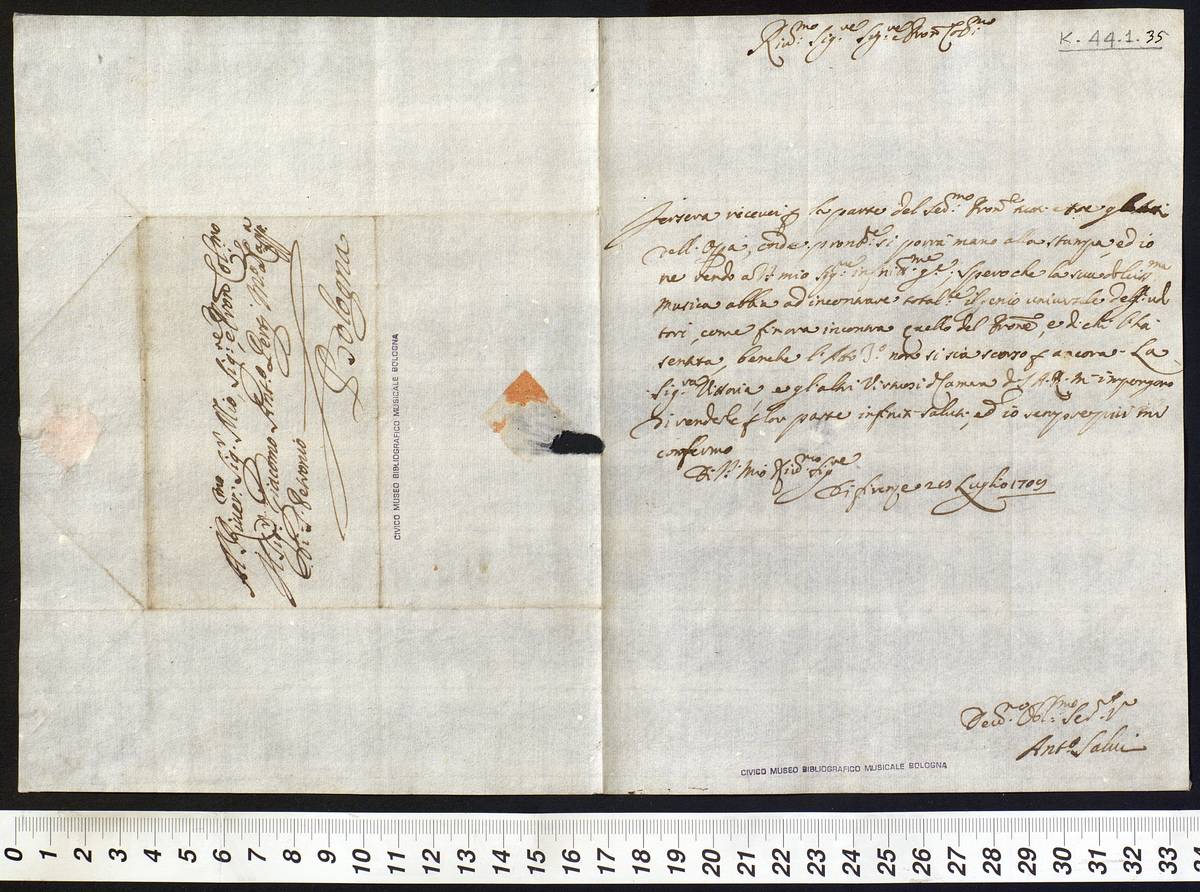 K. 44.1.35
Riv.mo Sig.re Sig.re e Pron Col.mo
Jersera ricevei p la parte del Ser.mo Pron.e
dell' Opa, onde si porrà mano alla stampa, ed io
ne rendo a V.S. mio Sig.re infinit.me g.e Spero che la sua
musica abbia ad incontrare total.te il genio universale degl' udi
tori, come finora incontra quello del Prone, e di chi l'hà
sentita, benche l'Atto 3.o non si sia scorso p ancora. La
Sig.ra Vittoria, e gl'altri Virtuosi di Camera di S.A.R. m'impongono
di renderle p lor parte infiniti saluti, ed io sempre più mi
confermo
Di V.S. Mio Riv.mo Sig.re
Di Firenze 20 Luglio 1709
Dev.mo Obl.mo Se.re V.o
Ant.o Salvi
CIVICO MUSEO BIBLIOGRAFICO MUSICALE BOLOGNA
Al River. Sig. Mio Sig.re e Pron Col.mo
Il Sig.r Giacomo Ant.o Perti M.ro di Capp.a
di S. Petronio
Bologna
CIVICO MUSEO BIBLIOGRAFICO MUSICALE BOLOGNA
0 1 2 3 4 5 6 7 8 9 10 11 12 13 14 15 16 17 18 19 20 21 22 23 24 25 26 27 28 29 30 31 32 33